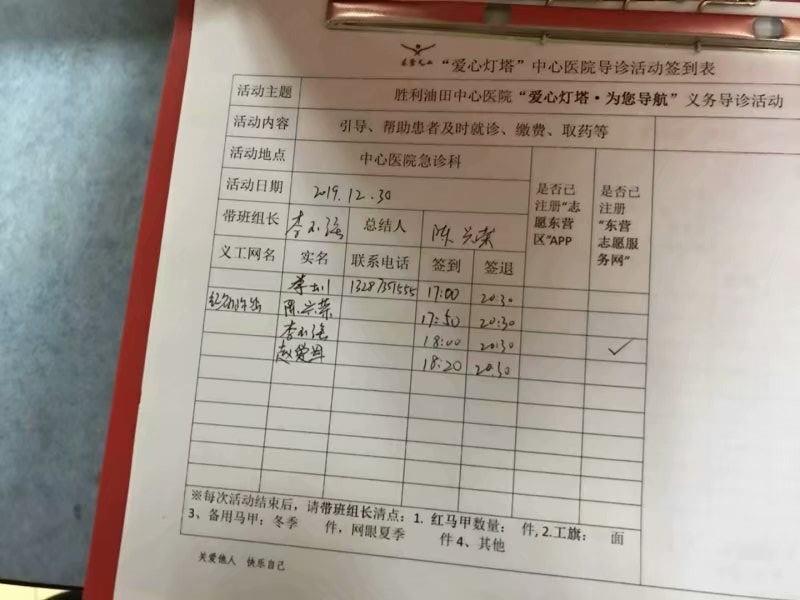 “爱心灯塔”中心医院导诊活动签到表
活动主题 胜利油田中心医院“爱心灯塔·为您导航”义务导诊活动
活动内容 引导、帮助患者及时就诊、缴费、取药等
活动地点 中心医院急诊科
活动日期 2019.12.30
是否已注册“志愿东营区”APP
是否已注册“东营志愿服务网”
带班组长 总结人 陈兴荣
义工网名 实名 联系电话 签到 签退
17:00 20:30
陈兴荣 17:50 20:30
18:00 20:30 ✓
18:20 20:30
※每次活动结束后，请带班组长清点：1. 红马甲数量： 件, 2.工旗： 面
3、备用马甲：冬季 件，网眼夏季 件 4、其他
关爱他人 快乐自己